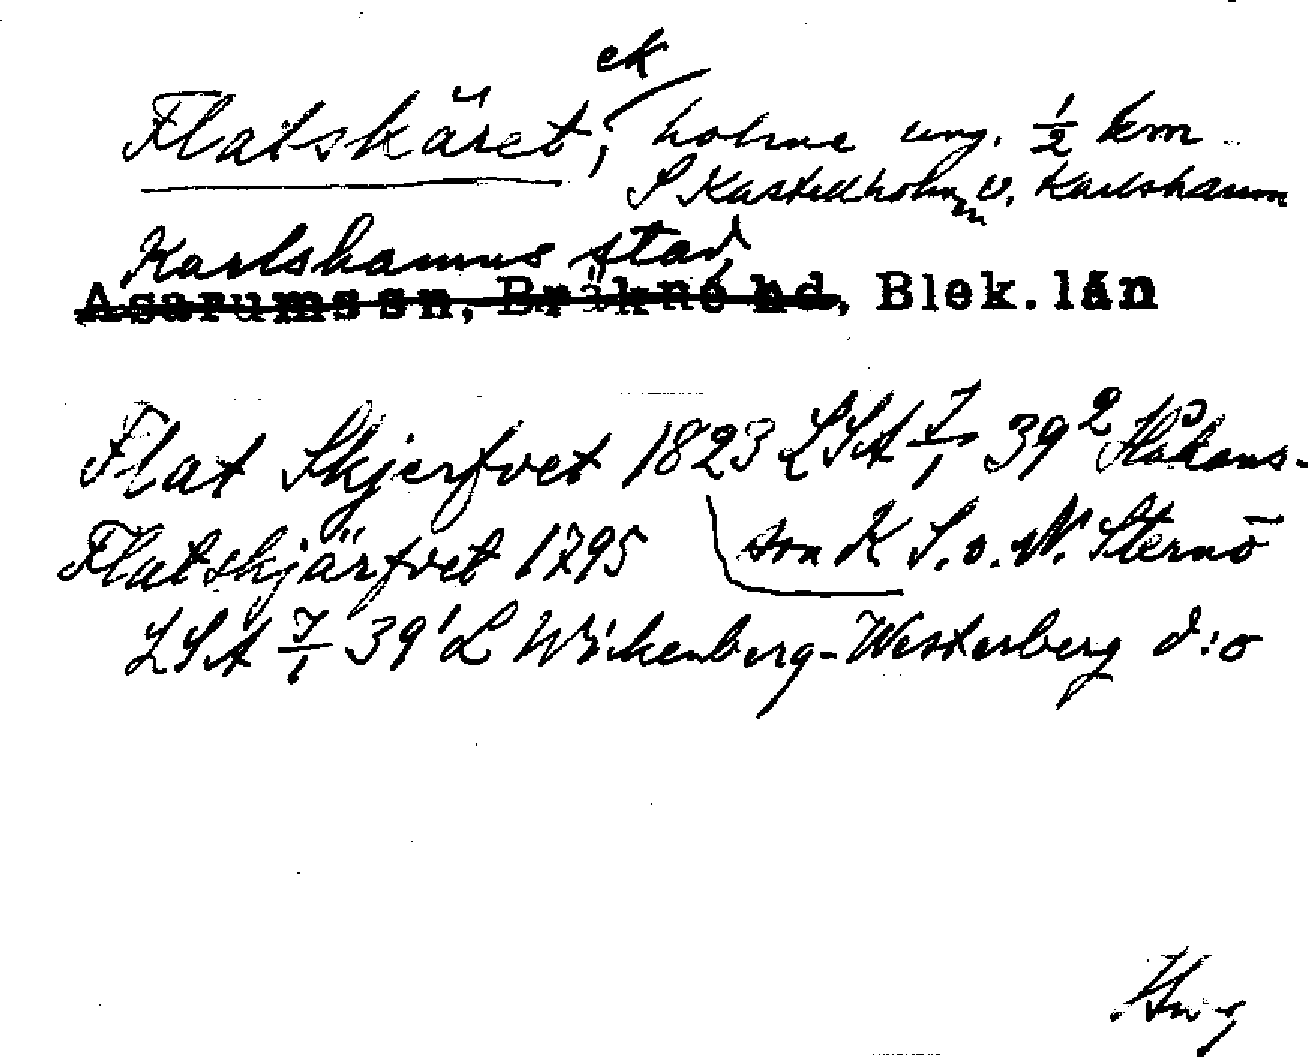 ek
Flatskäret, holme ung. 1/2 km
S Kastellholmen v. Karlshamn
Karlshamns stad
Asarums sn, Bräkne hd, Blek. län
Flat Skjerfvet 1823 LSA 7/1 39² Håkans-
Flatskjärfvet 1795 son K S. o. N. Sternö
LSA 7/1 39¹ L Wickenberg-Westerberg d:o